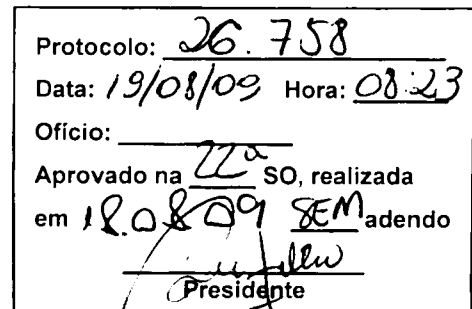 Protocolo: 26.758
Data: 19/08/09 Hora: 08:23
Ofício:
Aprovado na 22ª SO, realizada
em 18.08.09 SEM adendo
Presidente